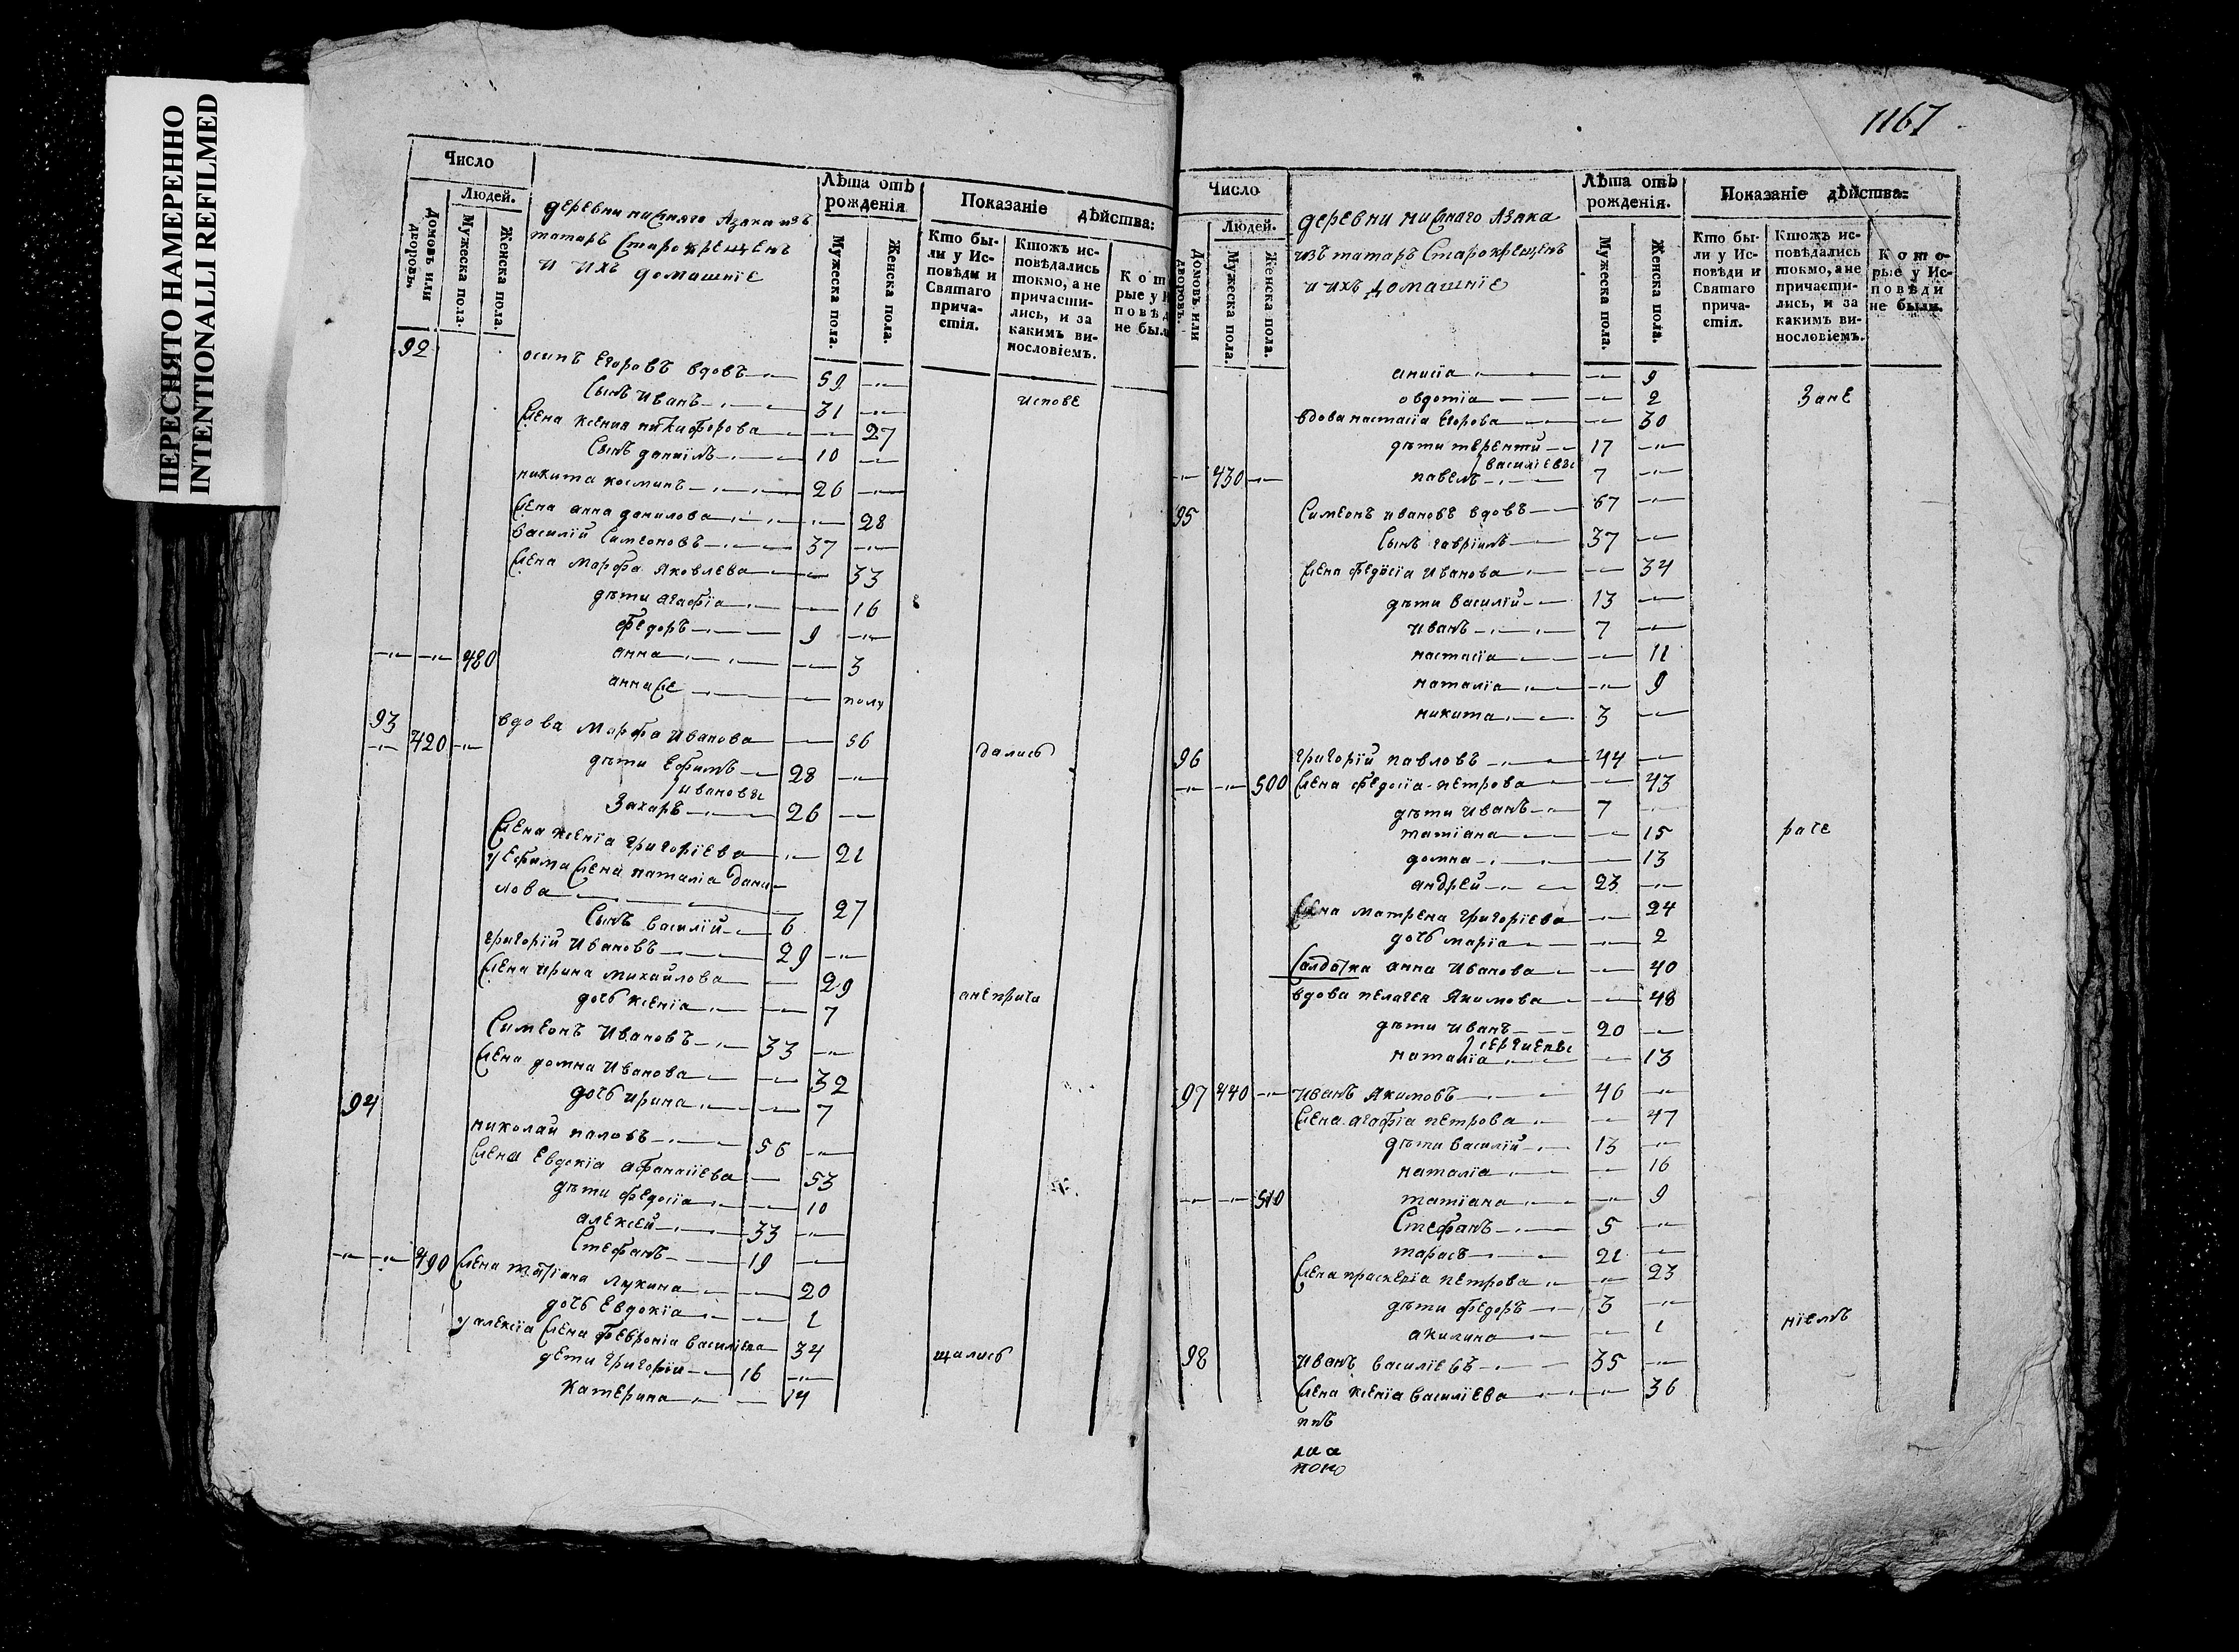 ПЕРЕСНЯТО НАМЕРЕННО
INTENTIONALLI REFILMED
Число
Людей.
Домовъ или дворовъ.
Мужеска пола.
Женска пола.
деревни нижняго Азяка изъ
татаръ Старокрещенъ
и ихъ домашніе
Лѣта отъ рождения
Мужеска пола.
Женска пола.
Показаніе дѣйства:
Кто бы-
ли у Ис-
повѣди и
Святаго
прича-
стія.
Ктожъ ис-
повѣдались
токмо, а не
причасти-
лись, и за
какимъ ви-
нословіемъ.
Кот
рые у И
повѣд
не был
92
осипъ Егоровъ вдовъ 59
Сынъ иванъ 31 испове
жена ксения никифорова 27
Сынъ даниилъ 10
никита косминъ 26
жена анна данилова 28
василий Симеоновъ 37
жена марфа яковлева 33
дѣти агафіа 16
федоръ 9
480 анна 3
анна же полу
93 вдова марфа иванова 56
420 дѣти ефимъ 28 дались
ивановы
Захаръ 26
жена ксеніа григоріева 21
у ефима жена наталіа дани-
лова 27
Сынъ василій 6
григорій ивановъ 29
жена ирина михайлова 29
дочь ксеніа 7 анеприча
Симеонъ ивановъ 33
жена домна иванова 32
дочь ирина 7
94 николай паловъ 56
жена Евдокіа афанасіева 53
дѣти федосіа 10
алексей 33
Стефанъ 19
490 жена татіана лукина 20
дочь Евдокіа 1
у алексіа жена феврониа василіева 34
дети григорій 16 щались
катерина 14
1167
Число
Людей.
Домовъ или дворовъ.
Мужеска пола.
Женска пола.
деревни нижняго Азяка
изъ татаръ Старокрещенъ
и ихъ домашніе
Лѣта отъ рождения.
Мужеска пола.
Женска пола.
Показаніе дѣйства:
Кто бы-
ли у Ис-
повѣди и
Святаго
прича-
стія.
Ктожъ ис-
повѣдались
токмо, а не
причасти-
лись, и за
какимъ ви-
нословіемъ.
Кото-
рые у Ис-
повѣди
не были.
анисіа 9
овдотіа 2 Зане
вдова настасіа Егорова 30
дѣти терентий 17
василіевы
430 павелъ 7
95 Симеонъ ивановъ вдовъ 67
Сынъ гавріилъ 37
жена федосіа иванова 34
дѣти василій 13
иванъ 7
настасіа 11
наталіа 9
никита 3
96 григорій павловъ 44
500 жена федосіа петрова 43
дѣти иванъ 7
татіана 15 раче
домна 13
андрей 23
жена матрена григоріева 24
дочь маріа 2
Салдатка анна иванова 40
вдова пелагея якимова 48
дѣти иванъ 20
сергиевы
наталіа 13
97 440 иванъ якимовъ 46
жена агафіа петрова 47
дѣти василий 13
наталіа 16
510 татіана 9
Стефанъ 5
тарасъ 21
жена праскевіа петрова 23
дѣти федоръ 3
акилина 1 ніемъ
98 иванъ василіевъ 35
жена ксеніа василіева 36